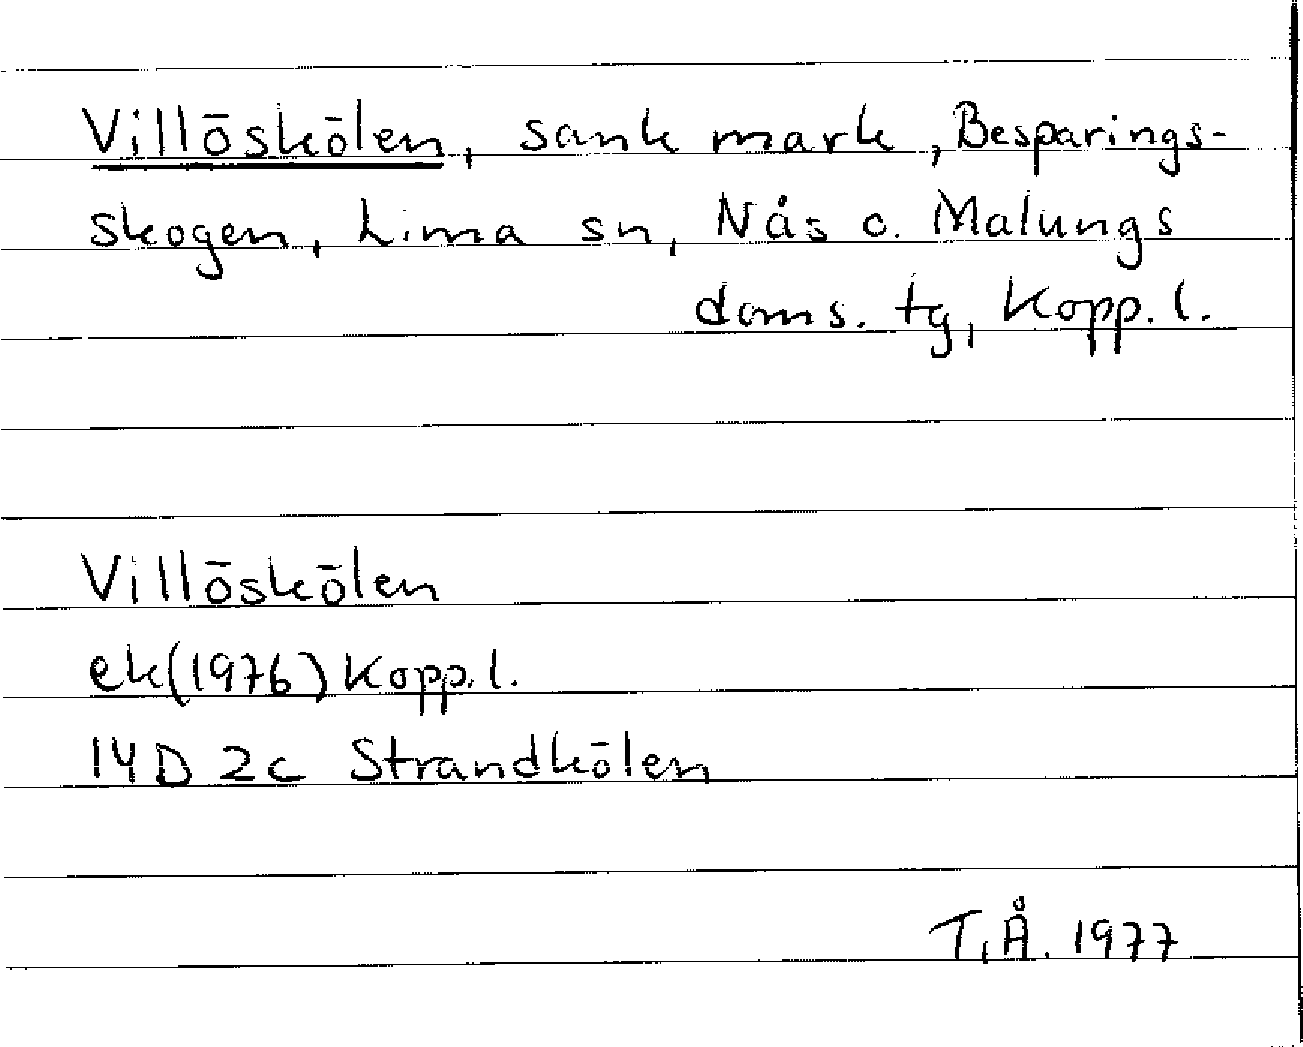 Villöskölen, sank mark, Besparings-
skogen, Lima sn, Nås o. Malungs
doms. tg, Kopp. l.
Villöskölen
ek(1976) Kopp. l.
14D 2c Strandkölen
T.Å. 1977